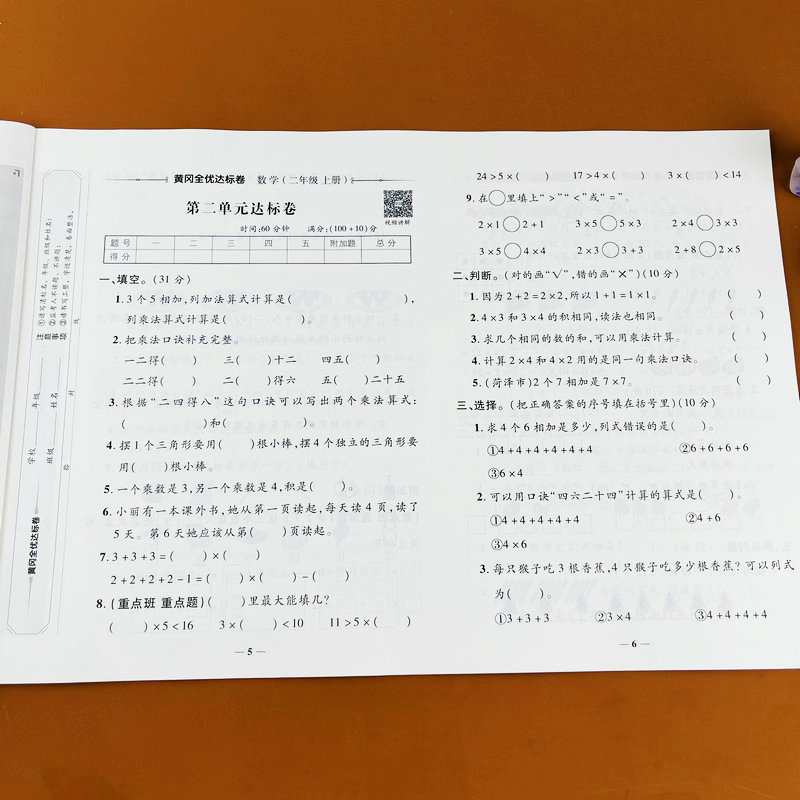 黄冈全优达标卷 数学(二年级 上册)
第二单元达标卷
视频讲解
时间:60分钟 满分:(100+10)分
题号 一 二 三 四 五 附加题 总分
得分
一、填空。(31分)
1. 3个5相加,列加法算式计算是( ),
列乘法算式计算是( )。
2. 把乘法口诀补充完整。
一二得( ) 三( )十二 四五( )
二二得( ) 二( )得六 五( )二十五
3. 根据“二四得八”这句口诀可以写出两个乘法算式:
( )和( )。
4. 摆1个三角形要用( )根小棒,摆4个独立的三角形要
用( )根小棒。
5. 一个乘数是3,另一个乘数是4,积是( )。
6. 小丽有一本课外书,她从第一页读起,每天读4页,读了
5天。第6天她应该从第( )页读起。
7. 3+3+3=( )×( )
2+2+2+2-1=( )×( )-( )
8. (重点班 重点题)( )里最大能填几?
( )×5<16 3×( )<10 11>5×( )
— 5 —
24>5×( ) 17>4×( ) 3×( )<14
9. 在○里填上“>”“<”或“=”。
2×1○2+1 3×5○5×3 2×4○3×3
3×5○4×4 2×3○3+3 2+8○2×5
二、判断。(对的画“√”,错的画“×”)(10分)
1. 因为2+2=2×2,所以1+1=1×1。 ( )
2. 4×3和3×4的积相同,读法也相同。 ( )
3. 求几个相同的数的和,可以用乘法计算。 ( )
4. 计算2×4和4×2用的是同一句乘法口诀。 ( )
5. (菏泽市)2个7相加是7×7。 ( )
三、选择。(把正确答案的序号填在括号里)(10分)
1. 求4个6相加是多少,列式错误的是( )。
①4+4+4+4+4+4 ②6+6+6+6
③6×4
2. 可以用口诀“四六二十四”计算的算式是( )。
①4+4+4+4+4 ②4+6
③4×6
3. 每只猴子吃3根香蕉,4只猴子吃多少根香蕉?可以列式
为( )。
①3+3+3 ②3×4 ③4+4+4+4
— 6 —
黄冈全优达标卷
学校
年级
班级
姓名
注意事项
①请写清校名、年级、班级和姓名;
②监考人不读题、不讲题;
③请书写工整、字迹清楚、卷面整洁。
你
封
线